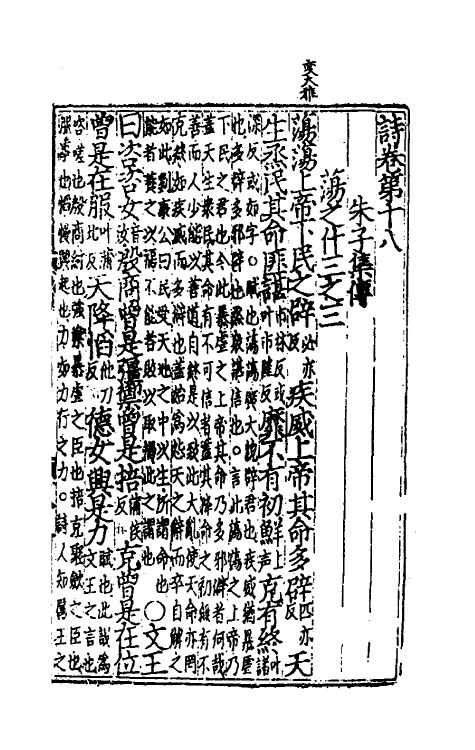 變大雅
詩卷第十八
朱子集傳
蕩之什三之三
蕩蕩上帝下民之辟必亦反疾威上帝其命多辟匹亦反天
生烝民其命匪諶市林反或叶市隆反靡不有初鮮上聲克有終叶諸
深反或如字○賦也蕩蕩廣大貌辟君也疾威猶暴虐
也多辟多邪僻也烝衆諶信也○言此蕩蕩之上帝乃
下民之君也今此暴虐之上帝其命乃多邪僻者何哉
蓋天生衆民其命有不可信者蓋其降命之初無有不
善而人少能以善道自終是以致此大亂使天命亦罔
克終如疾威而多僻也蓋始為怨天之辭而卒自解之
如此劉康公曰民受天地之中以生所謂命也
能者養之以福不能者敗以取禍此之謂也○文王
曰咨咨女音汝殷商曾是彊禦曾是掊蒲侯反克曾是在位
曾是在服叶蒲北反天降慆他刀反德女興是力賦也此設為文王之言也
咨嗟也殷商紂也彊禦暴虐之臣也掊克聚斂之臣也
服事也慆慢興起也力如力行之力○詩人知厲王之